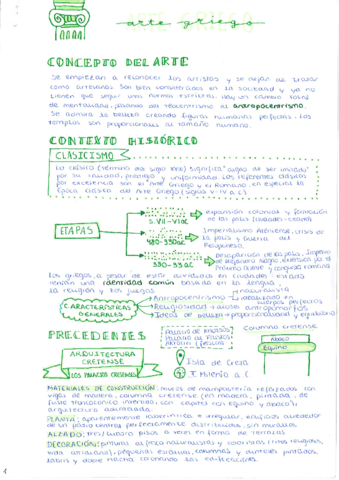 arte griego
CONCEPTO DEL ARTE
Se empiezan a reconocer los artistas y se dejan de tratar
como artesanos. Son bien considerados en la sociedad y ya no
tienen que seguir unas normas estrictas. Hay un cambio
de mentalidad, pasando del teocentrismo al antropocentrismo.
Se admira la belleza creando figuras humanas perfectas. Los
templos son proporcionales al tamaño humano.
CONTEXTO HISTÓRICO
CLASICISMO
Lo clásico (término del siglo XVII) significa "digno de ser imitado"
por su claridad, y uniformidad. Los referentes clásicos
por excelencia son el Arte Griego y el Romano, en especial la
Época clásica del Arte Griego (siglos V-IV a.C.)
ETAPAS
S. VII-VI aC
expansión colonial y formación
de las polis (ciudades-estado)
480-330aC
Imperialismo Ateniense, crisis de
la polis y guerra del
Peloponeso
330-33 aC
de las polis, Imperio
de Alejandro Magno,
Próximo Oriente y conquista romana
Los griegos, a pesar de estar divididos en ciudades-estado
tenían una identidad común basada en la lengua,
la religión y los juegos
CARACTERÍSTICAS
GENERALES
Antropocentrismo
naturalista
cuerpos perfectos
Religiosidad → dioses antropomorfos
Ideas de belleza → proporcionalidad y equilibrio
PRECEDENTES
ARQUITECTURA
CRETENSE
LOS PALACIOS CRETENSES
Palacio de Knossos
columna cretense
Ábaco
Equino
Isla de Creta
II Milenio a.C
MATERIALES DE CONSTRUCCIÓN: muros de mampostería reforzados con
vigas de madera, columna cretense (en madera, pintada, de
fuste troncocónico invertido, con capitel con equino y ábaco)
arquitectura adintelada.
PLANTA: aparentemente laberíntica e irregular, edificios alrededor
de un patio central perfectamente distribuidos, sin murallas.
ALZADO: tres/cuatro pisos, a veces en forma de terrazas
DECORACIÓN: pinturas al fresco naturalistas y coloridas (ritos religiosos,
vida cotidiana), pequeñas esculturas, columnas y dinteles pintados,